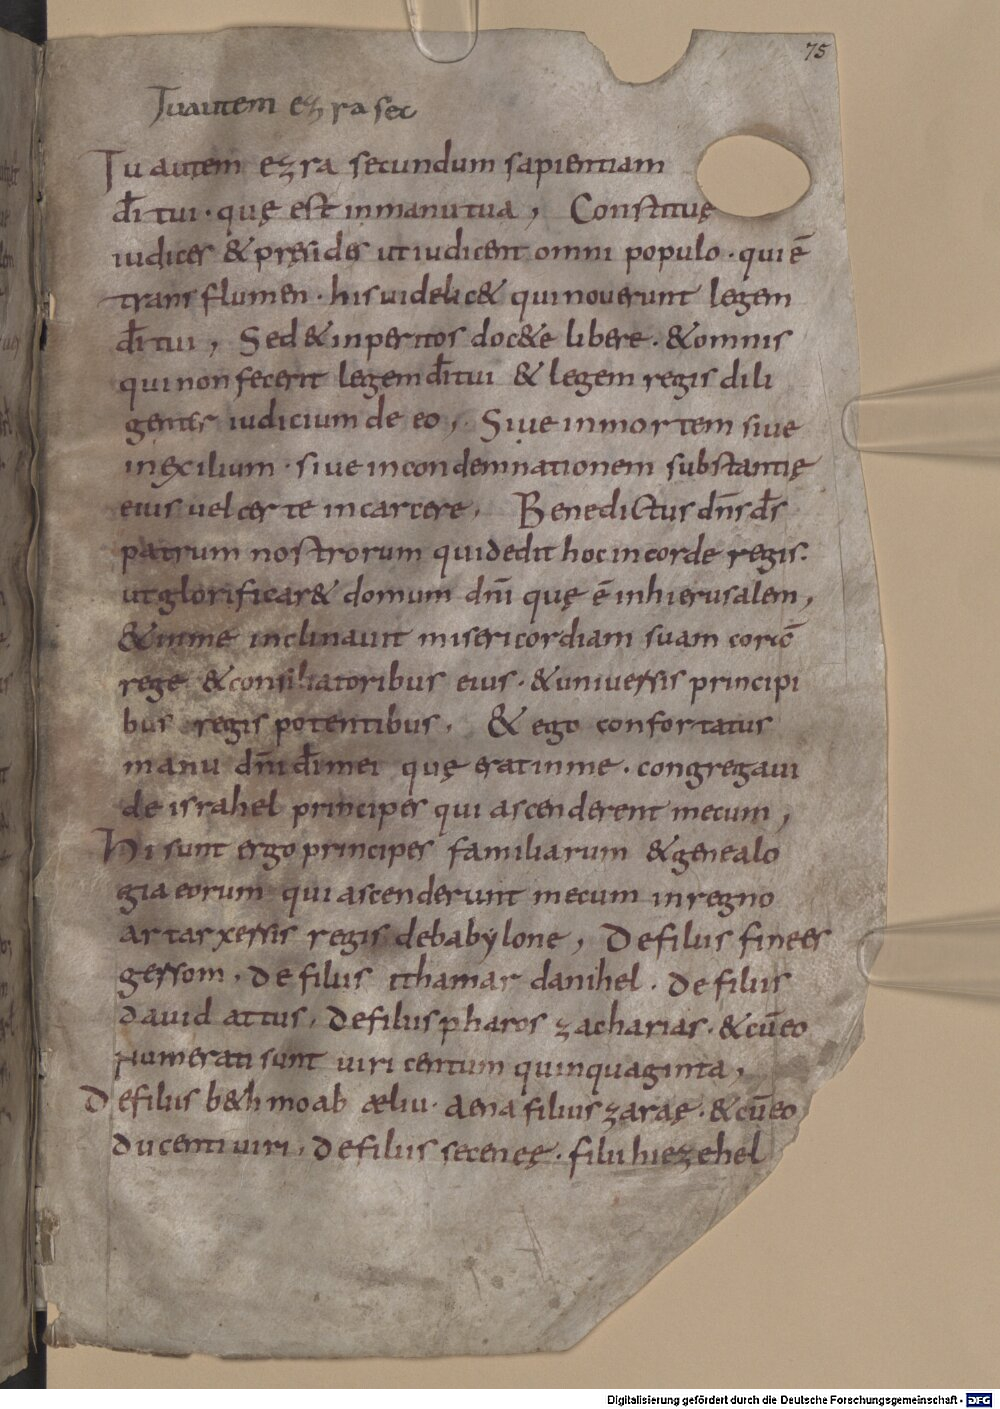 75
Tuautem ezra sec
Tu autem ezra secundum sapientiam
d̄i tui · quę est inmanu tua , Constituę
iudices & pręsides ut iudicent omni populo · qui ē
trans flumen · his uidelic& qui nouerunt legem
d̄i tui , Sed & inperitos doc&e libere · & omnis
qui non fecerit legem d̄i tui & legem regis dili
genter iudicium de eo , Siue inmortem siue
inexilium · siue incondemnationem substantię
eius uel certe incarcere , Benedictus dn̄s d̄s
patrum nostrorum qui dedit hoc incorde regis ·
ut glorificar& domum dn̄i quę ē inhierusalem ,
& inme inclinauit misericordiam suam corā
rege & consiliatoribus eius · & uniuersis principi
bus regis potentibus , & ego confortatus
manu dn̄i d̄i mei quę erat inme · congregaui
de israhel principes qui ascenderent mecum ,
Hi sunt ergo principes familiarum & genealo
gia eorum qui ascenderunt mecum inregno
artarxersis regis debabylone , Defiliis finees
gersom , Defiliis ithamar danihel · Defiliis
dauid attus , Defiliis pharos zacharias · & cū eo
numerati sunt uiri centum quinquaginta ,
Defiliis b&h moab æliu · aena filius zaraę · & cū eo
ducenti uiri , Defiliis seceneę · filii hiezehel
Digitalisierung gefördert durch die Deutsche Forschungsgemeinschaft - DFG